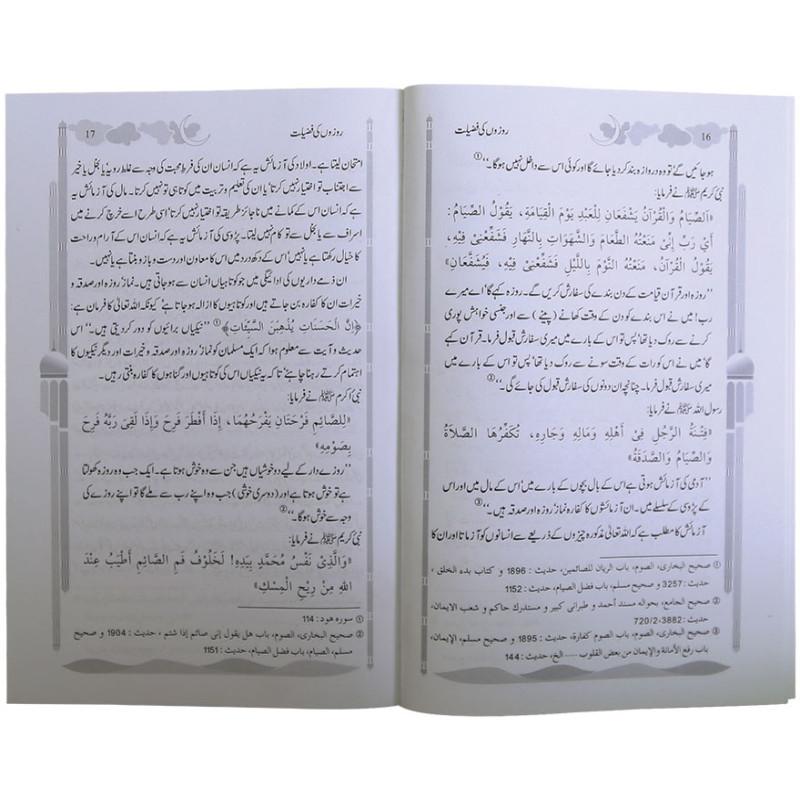 16
روزوں کی فضیلت
ہو جائیں گے' تو وہ دروازہ بند کر دیا جائے گا اور کوئی اس سے داخل نہیں ہوگا۔‘‘ ①
نبی کریم ﷺ نے فرمایا:
«اَلصِّيَامُ وَالْقُرْآنُ يَشْفَعَانِ لِلْعَبْدِ يَوْمَ الْقِيَامَةِ، يَقُولُ الصِّيَامُ:
أَيْ رَبِّ إِنِّي مَنَعْتُهُ الطَّعَامَ وَالشَّهَوَاتِ بِالنَّهَارِ فَشَفِّعْنِي فِيهِ،
يَقُولُ الْقُرْآنُ، مَنَعْتُهُ النَّوْمَ بِاللَّيْلِ فَشَفِّعْنِي فِيهِ، فَيُشَفَّعَانِ»
’’روزہ اور قرآن قیامت کے دن بندے کی سفارش کریں گے۔ روزہ کہے گا' اے میرے
رب! میں نے اس بندے کو دن کے وقت کھانے (پینے) سے اور جنسی خواہش پوری
کرنے سے روک دیا تھا' پس تو اس کے بارے میں میری سفارش قبول فرما۔ قرآن کہے
گا' میں نے اس کو رات کے وقت سونے سے روک دیا تھا' پس تو اس کے بارے میں
میری سفارش قبول فرما۔ چنانچہ ان دونوں کی سفارش قبول کی جائے گی۔‘‘ ②
رسول اللہ ﷺ نے فرمایا:
«فِتْنَةُ الرَّجُلِ فِي أَهْلِهِ وَمَالِهِ وَجَارِهِ، تُكَفِّرُهَا الصَّلَاةُ
وَالصِّيَامُ وَالصَّدَقَةُ»
’’آدمی کی آزمائش ہوتی ہے اس کے بال بچوں کے بارے میں' اس کے مال میں اور اس
کے پڑوسی کے سلسلے میں۔ ان آزمائشوں کا کفارہ نماز' روزہ اور صدقہ ہیں۔‘‘ ③
آزمائش کا مطلب ہے کہ اللہ تعالیٰ مذکورہ چیزوں کے ذریعے سے انسانوں کو آزماتا اور ان کا
① صحیح البخاری، الصوم، باب الریان للصائمین، حدیث : 1896 و کتاب بدء الخلق ،
حدیث : 3257 و صحیح مسلم، باب فضل الصیام، حدیث : 1152
② صحیح الجامع، بحوالہ مسند أحمد و طبرانی کبیر و مستدرک حاکم و شعب الایمان،
حدیث : 3882، 720/2
③ صحیح البخاری، الصوم، باب الصوم کفارة، حدیث : 1895 و صحیح مسلم، الإیمان،
باب رفع الأمانة والإیمان من بعض القلوب ..... الخ، حدیث : 144
17
روزوں کی فضیلت
امتحان لیتا ہے۔ اولاد کی آزمائش یہ ہے کہ انسان ان کی فرط محبت کی وجہ سے غلط رویہ' یا بخل یا خیر
سے اجتناب تو اختیار نہیں کرتا' یا ان کی تعلیم و تربیت میں کوتاہی تو نہیں کرتا۔ مال کی آزمائش یہ
ہے کہ انسان اس کے کمانے میں ناجائز طریقہ تو اختیار نہیں کرتا' اسی طرح اسے خرچ کرنے میں
اسراف سے یا بخل سے تو کام نہیں لیتا۔ پڑوسی کی آزمائش یہ ہے کہ انسان اس کے آرام و راحت کا
خیال رکھتا ہے یا نہیں' اس کے دکھ درد میں اس کا معاون اور دست و بازو بنتا ہے یا نہیں۔
ان ذمے داریوں کی ادائیگی میں جو کوتاہیاں انسان سے ہو جاتی ہیں۔ نماز' روزہ اور صدقہ و
خیرات ان کا کفارہ بن جاتے ہیں اور کوتاہیوں کا ازالہ ہو جاتا ہے' کیونکہ اللہ تعالیٰ کا فرمان ہے:
﴿إِنَّ الْحَسَنَاتِ يُذْهِبْنَ السَّيِّئَاتِ﴾ ① ’’نیکیاں برائیوں کو دور کر دیتی ہیں۔‘‘ اس
حدیث و آیت سے معلوم ہوا کہ ایک مسلمان کو نماز' روزہ اور صدقہ و خیرات اور دیگر نیکیوں کا
اہتمام کرتے رہنا چاہیے' تاکہ یہ نیکیاں اس کی کوتاہیوں اور گناہوں کا کفارہ بنتی رہیں۔
نبی اکرم ﷺ نے فرمایا:
«لِلصَّائِمِ فَرْحَتَانِ يَفْرَحُهُمَا، إِذَا أَفْطَرَ فَرِحَ وَإِذَا لَقِيَ رَبَّهُ فَرِحَ
بِصَوْمِهِ»
’’روزے دار کے لیے دو خوشیاں ہیں جن سے وہ خوش ہوتا ہے۔ ایک جب وہ روزہ کھولتا
ہے تو خوش ہوتا ہے اور (دوسری خوشی) جب وہ اپنے رب سے ملے گا تو اپنے روزے کی
وجہ سے خوش ہوگا۔‘‘ ②
نبی کریم ﷺ نے فرمایا:
«وَالَّذِي نَفْسُ مُحَمَّدٍ بِيَدِهِ! لَخُلُوفُ فَمِ الصَّائِمِ أَطْيَبُ عِنْدَ
اللهِ مِنْ رِيحِ الْمِسْكِ»
① سورہ ھود : 114
② صحیح البخاری، الصوم، باب هل یقول إنی صائم إذا شتم ، حدیث : 1904 و صحیح
مسلم، الصیام، باب فضل الصیام، حدیث : 1151